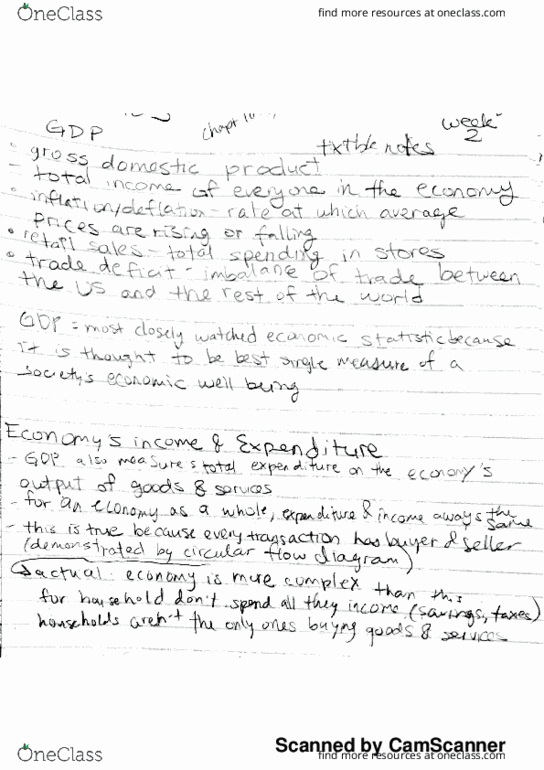 OneClass
find more resources at oneclass.com
GDP
chapt 10
txtbk notes
week
2
- gross domestic product
- total income of everyone in the economy
• inflation/deflation - rate at which average
prices are rising or falling
• retail sales - total spending in stores
• trade deficit - imbalance of trade between
the US and the rest of the world
GDP = most closely watched economic statistic because
it is thought to be best single measure of a
society's economic well being
Economy's income & Expenditure
- GDP also measures total expenditure on the economy's
output of goods & services
- for an economy as a whole, expenditure & income aways the same
- this is true because every transaction has buyer & seller
(demonstrated by circular flow diagram)
actual economy is more complex than this
for household don't spend all they income (savings, taxes)
households aren't the only ones buying goods & services
Scanned by CamScanner
OneClass
find more resources at oneclass.com